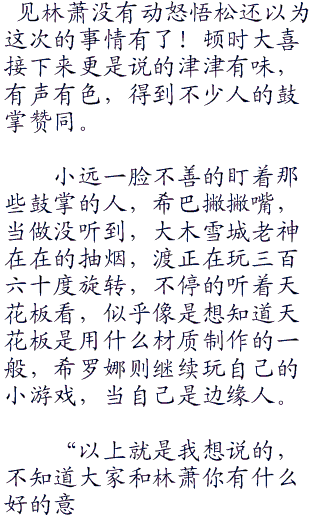 见林萧没有动怒悟松还以为
这次的事情有了！顿时大喜
接下来更是说的津津有味，
有声有色，得到不少人的鼓
掌赞同。
小远一脸不善的盯着那
些鼓掌的人，希巴撇撇嘴，
当做没听到，大木雪城老神
在在的抽烟，渡正在玩三百
六十度旋转，不停的听着天
花板看，似乎像是想知道天
花板是用什么材质制作的一
般，希罗娜则继续玩自己的
小游戏，当自己是边缘人。
“以上就是我想说的，
不知道大家和林萧你有什么
好的意